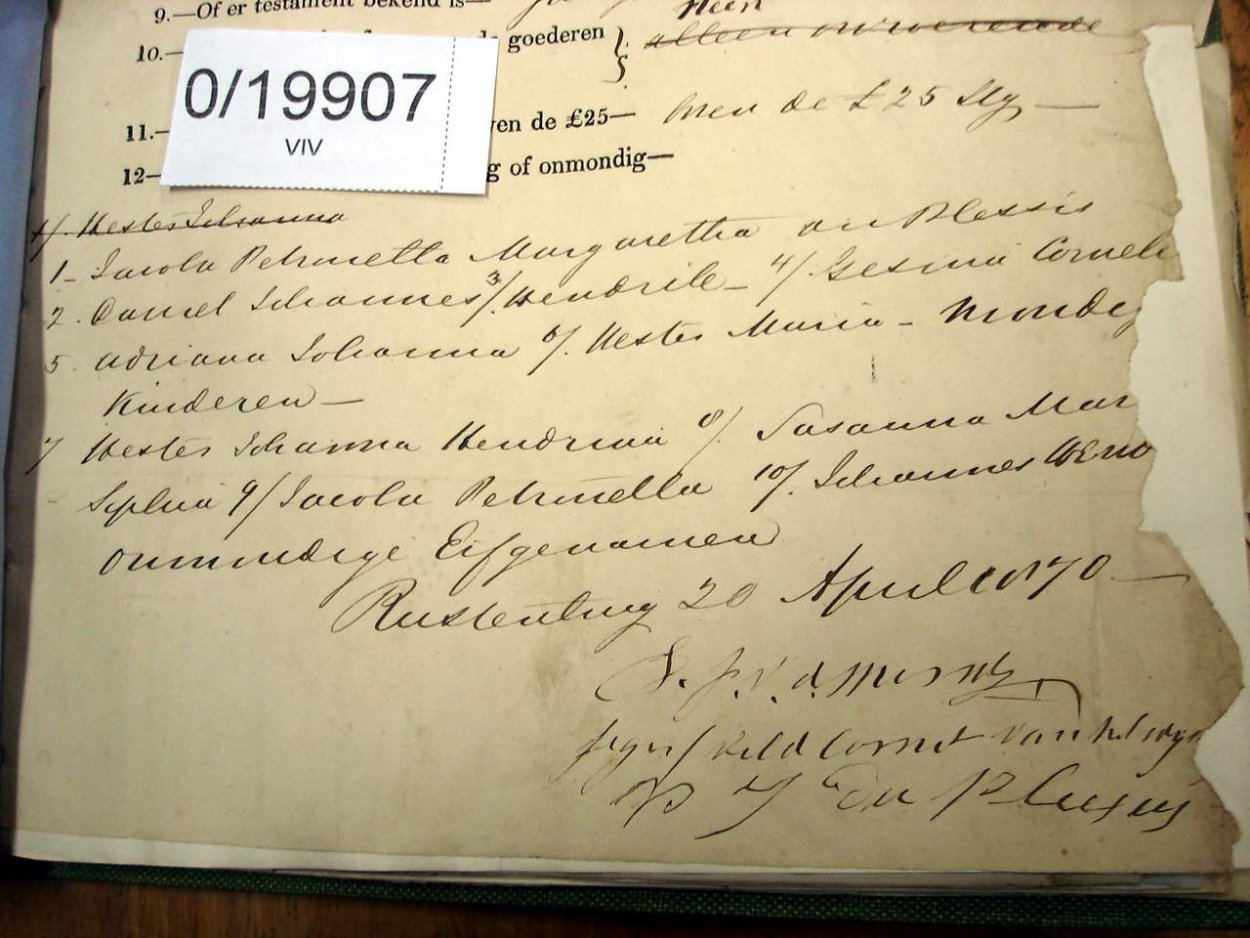 9.—Of er testament bekend is—
Neen
10.— goederen alleen onroerende
0/19907
VIV
11.— ven de £25— boven de £25 Stg —
12— g of onmondig—
1/. Hester Johanna
1- Jacoba Petronella Margaretha du Plessis
2. Daniel Johannes 3/. Hendrik - 4/. Gesina Corneli
5. Adriana Johanna 6/. Hester Maria - Mondig
Kinderen —
7 Hester Johanna Hendrina 8/. Susanna Mar
Sophia 9/ Jacoba Petronella 10/. Johannes
onmondige Erfgenamen
Rustenburg 20 April 1870 —
v. d.
Veld Cornet van het wyk
P J Du Plessis